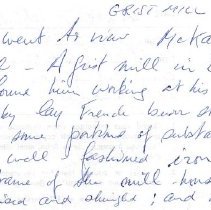 GRIST MILL
went to view McKa
A grist mill in
found him working at his
by lay French burr
some portions of
well fashioned iron
frame of the mill
and shingled; and